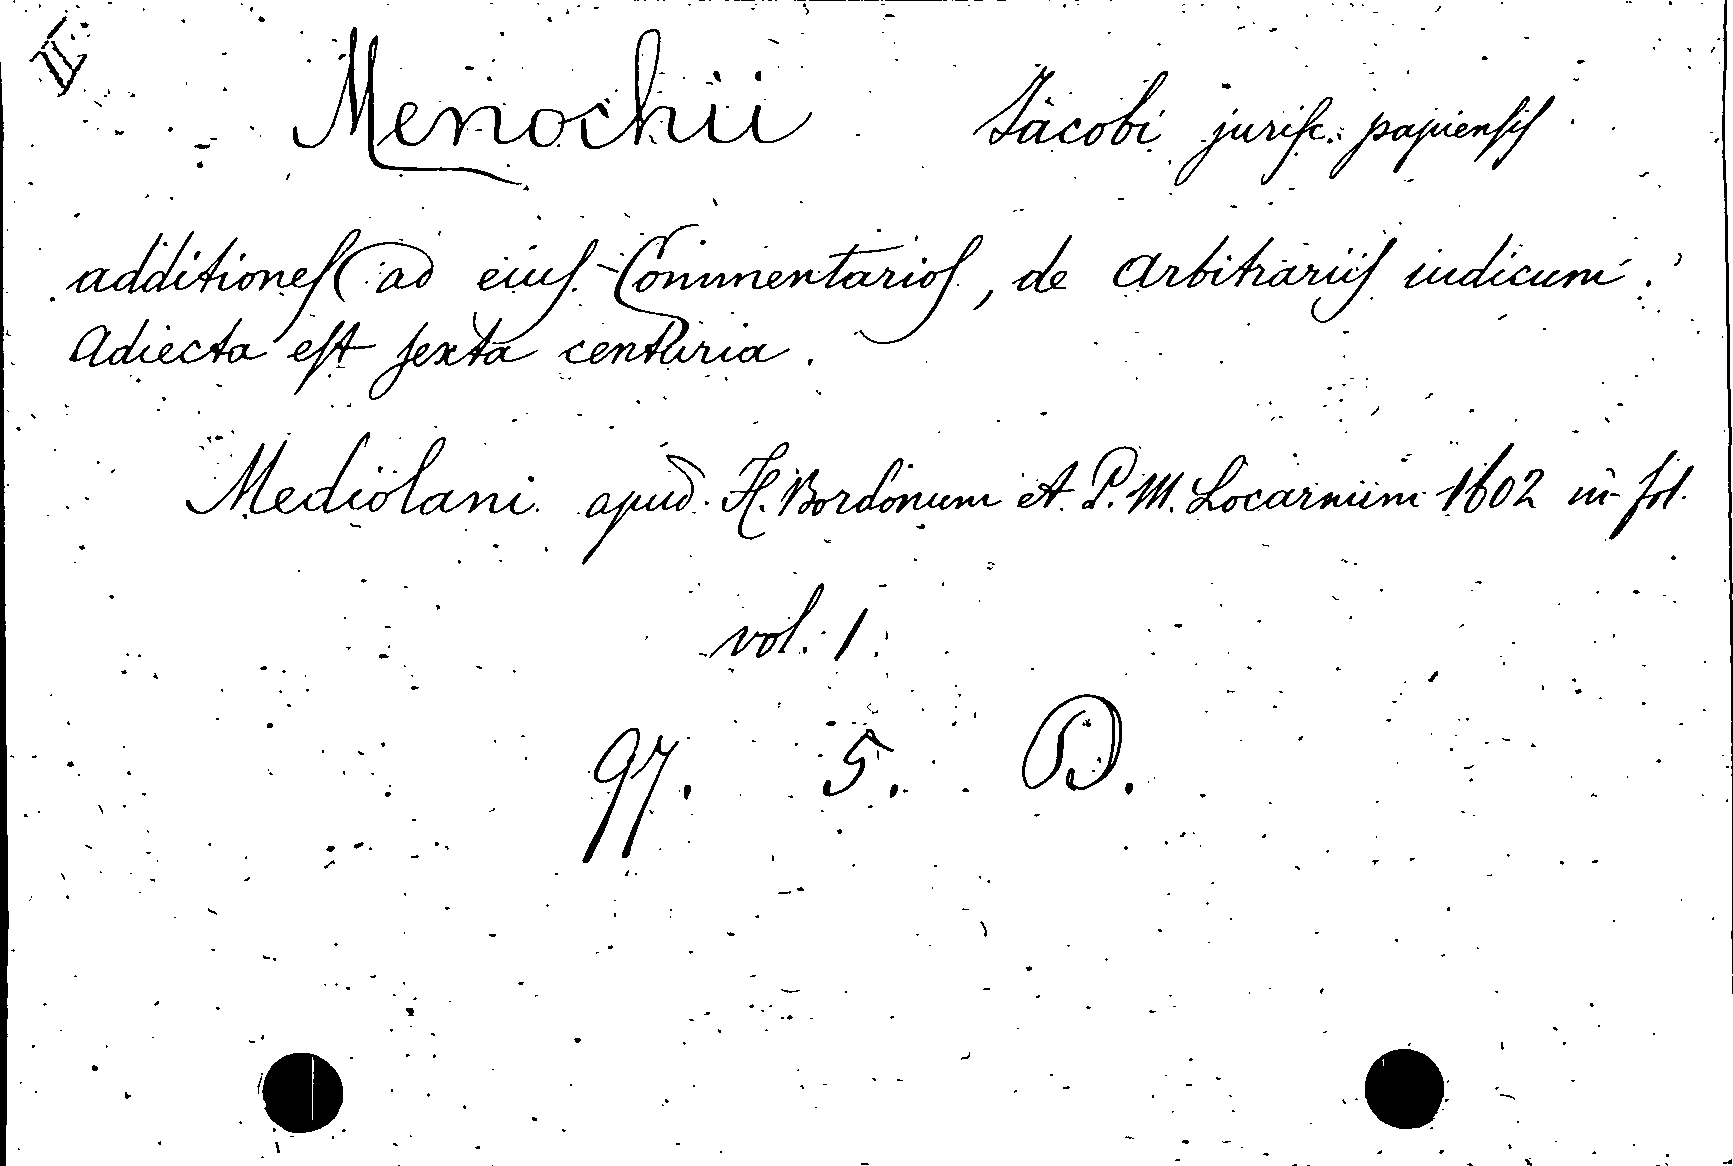 II.
Menochii Jacobi jurisc. papiensis
additiones ad eius Commentarios, de arbitrariis iudicum.
Adiecta est sexta centuria.
Mediolani apud H. Bordonum et P. M. Locarnum 1602 in fol.
vol. 1.
97. 5. D.